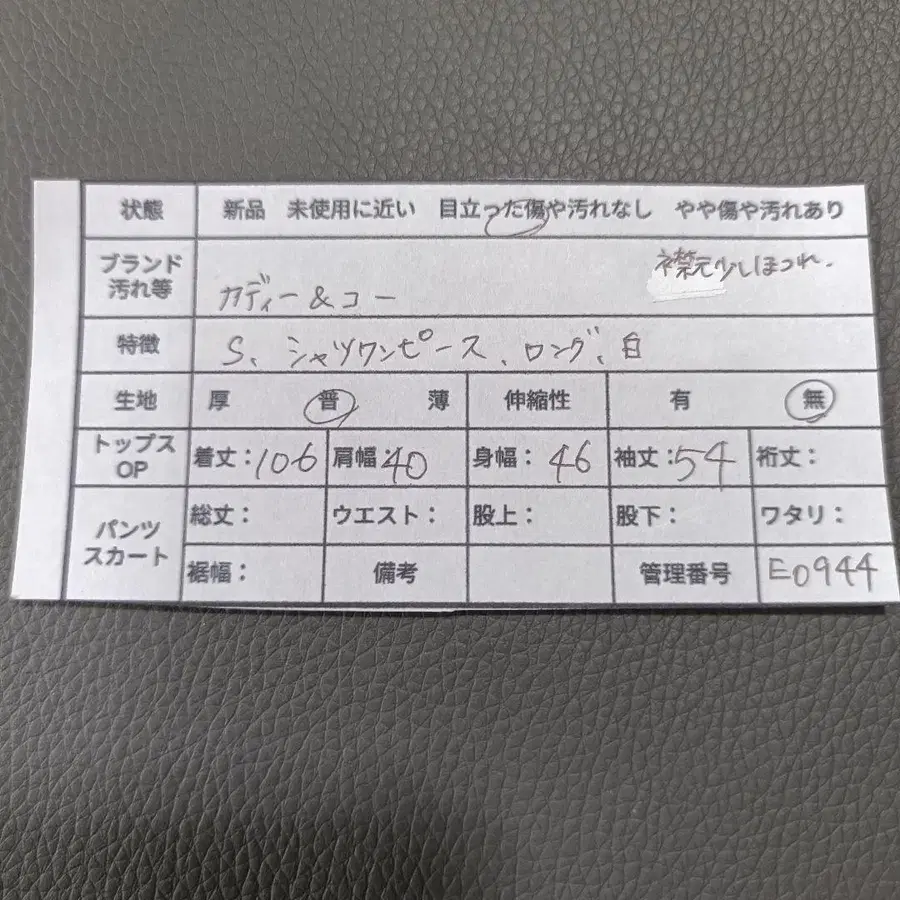 状態 新品 未使用に近い 目立った傷や汚れなし やや傷や汚れあり
ブランド 襟元少しほつれ.
汚れ等 カディー&コー
特徴 S、シャツワンピース、ロング、白
生地 厚 普 薄 伸縮性 有 無
トップス OP 着丈:106 肩幅:40 身幅:46 袖丈:54 裄丈:
パンツ スカート 総丈: ウエスト: 股上: 股下: ワタリ:
裾幅: 備考 管理番号 E0944